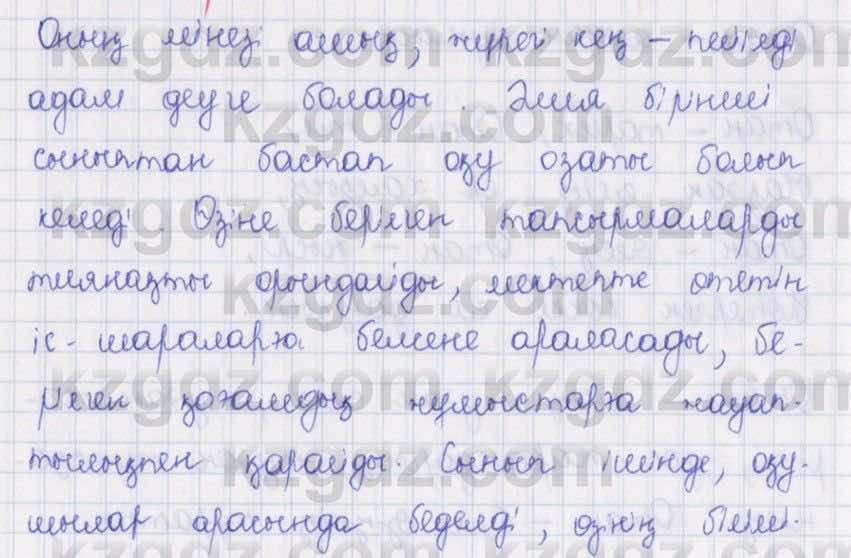 Оның мінезі ашық, жүрегі кең – пейілді
адам деуге болады. Әлия бірінші
сыныптан бастап оқу озаты болып
келеді. Өзіне берілген тапсырмаларды
тиянақты орындайды, мектепте өтетін
іс-шараларға белсене араласады, бе-
рілген қоғамдық жұмыстарға жауап-
тылықпен қарайды. Сынып ішінде, оқу-
шылар арасында беделді, өзінің білім-
kzgdz.com